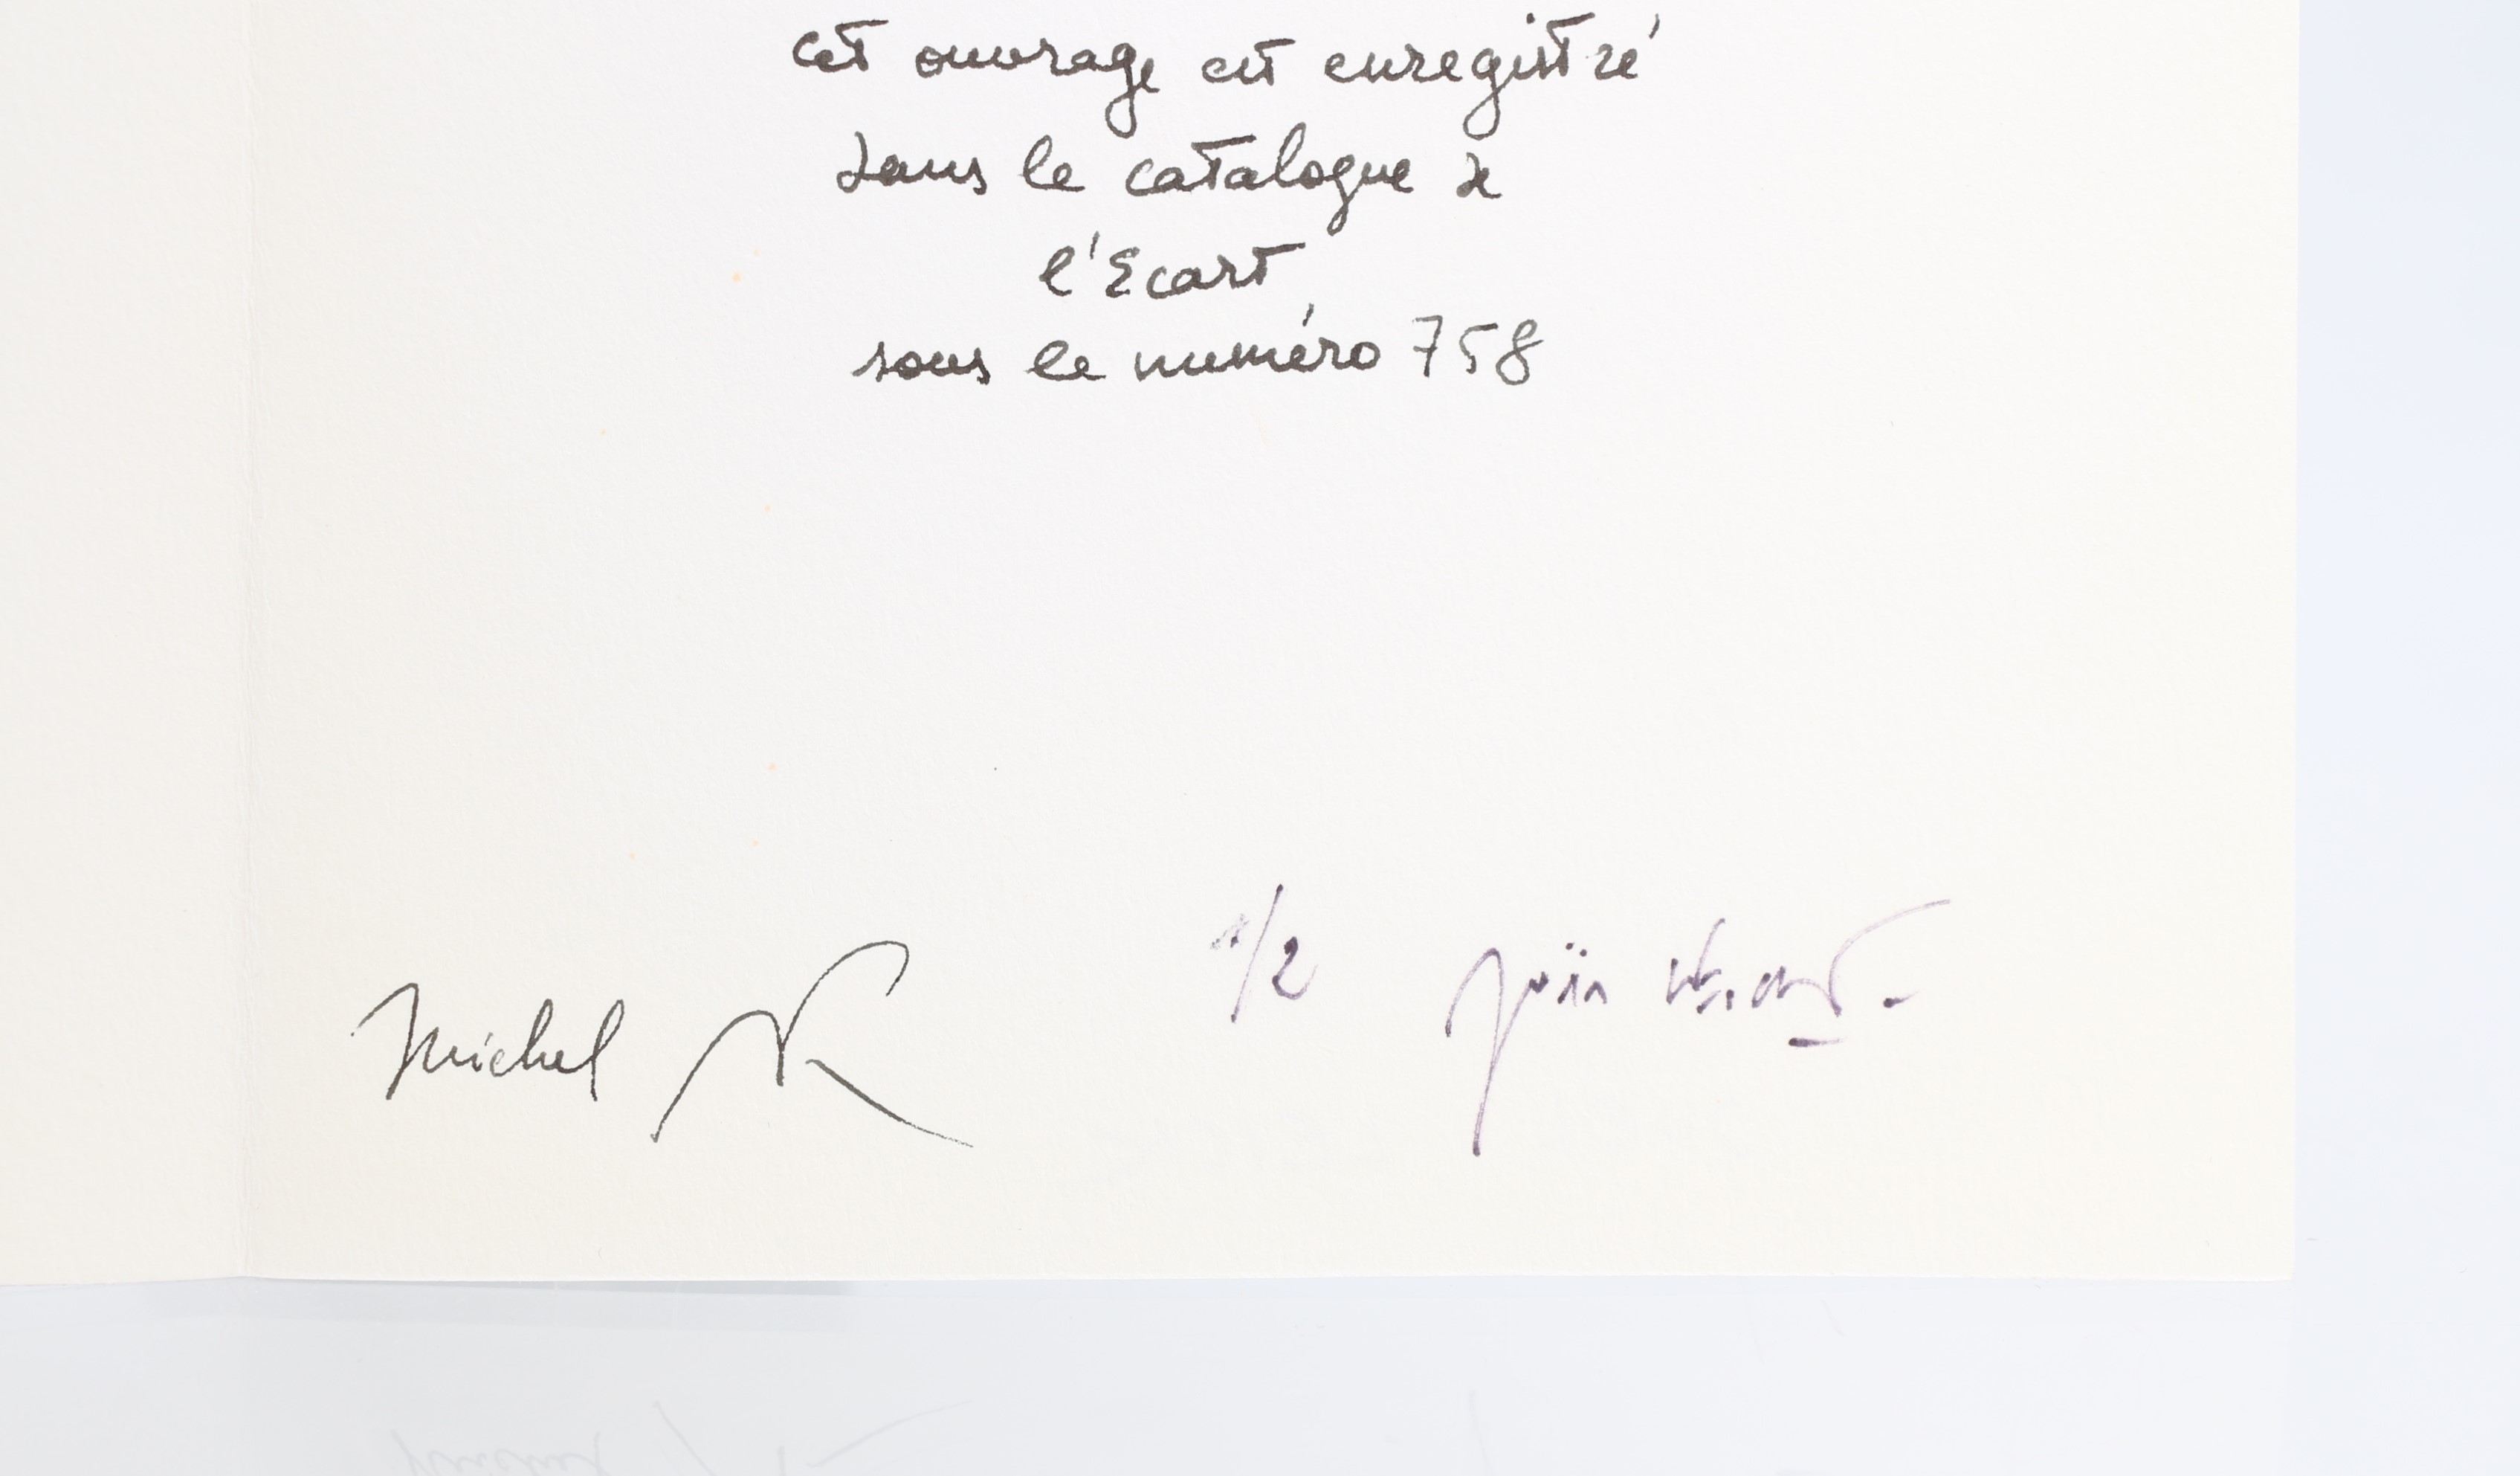 cet ouvrage est enregistré
dans le catalogue de
l'Ecart
sous le numéro 758
Michel R
1/2 Joël